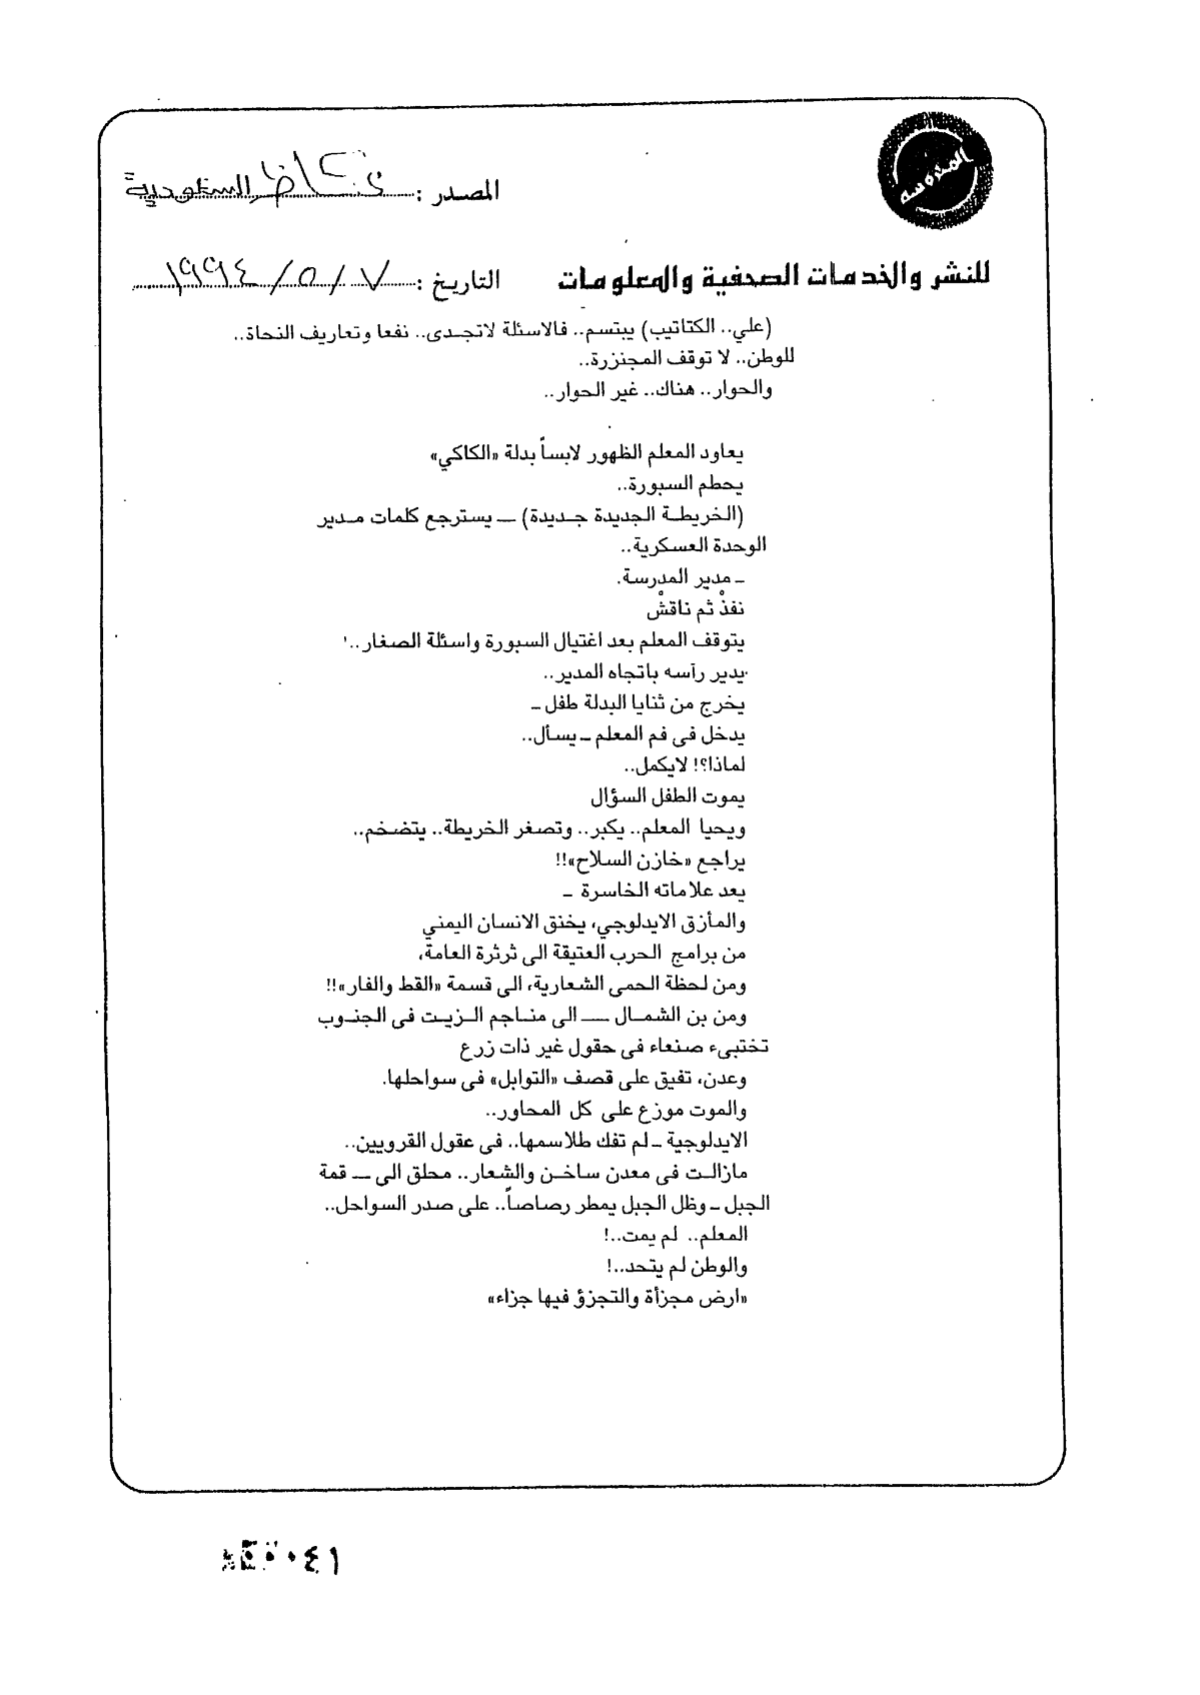 المصدر : عكاظ السعودية
للنشر والخدمات الصحفية والمعلومات
التاريخ : ٧ / ٥ / ١٩٩٤
(علي.. الكتاتيب) يبتسم.. فالاسئلة لاتجدى.. نفعا وتعاريف النحاة..
للوطن.. لا توقف المجنزرة..
والحوار.. هناك.. غير الحوار..
يعاود المعلم الظهور لابساً بدلة «الكاكي»
يحطم السبورة..
(الخريطة الجديدة جديدة) ــ يسترجع كلمات مدير
الوحدة العسكرية..
ـ مدير المدرسة.
نفذْ ثم ناقشْ
يتوقف المعلم بعد اغتيال السبورة واسئلة الصغار..
يدير رأسه باتجاه المدير..
يخرج من ثنايا البدلة طفل ـ
يدخل فى فم المعلم ـ يسأل..
لماذا؟! لايكمل..
يموت الطفل السؤال
ويحيا المعلم.. يكبر.. وتصغر الخريطة.. يتضخم..
يراجع «خازن السلاح»!!
يعد علاماته الخاسرة ـ
والمأزق الايدلوجي، يخنق الانسان اليمني
من برامج الحرب العتيقة الى ثرثرة العامة،
ومن لحظة الحمى الشعارية، الى قسمة «القط والفار»!!
ومن بن الشمال ــ الى مناجم الزيت فى الجنوب
تختبىء صنعاء فى حقول غير ذات زرع
وعدن، تفيق على قصف «التوابل» فى سواحلها.
والموت موزع على كل المحاور..
الايدلوجية ـ لم تفك طلاسمها.. فى عقول القرويين..
مازالت فى معدن ساخن والشعار.. محلق الى ــ قمة
الجبل ـ وظل الجبل يمطر رصاصاً.. على صدر السواحل..
المعلم.. لم يمت..!
والوطن لم يتحد..!
«ارض مجزأة والتجزؤ فيها جزاء»